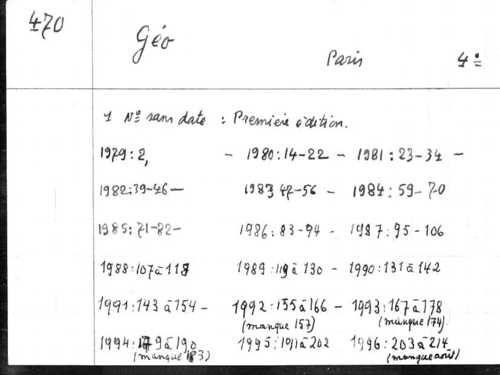 470
Géo
Paris
4º
1 Nº sans date : Première édition.
1979:2, - 1980:14-22 - 1981:23-34 -
1982:39-46- 1983 47-56 - 1984:59-70
1985:71-82- 1986:83-94 - 1987:95-106
1988:107 à 118 1989:119 à 130 - 1990:131 à 142
1991:143 à 154 - 1992:155 à 166 - 1993:167 à 178
(manque 157) (manque 174)
1994:179 à 190 1995:191 à 202 1996:203 à 214
(manque 183) (manque août)